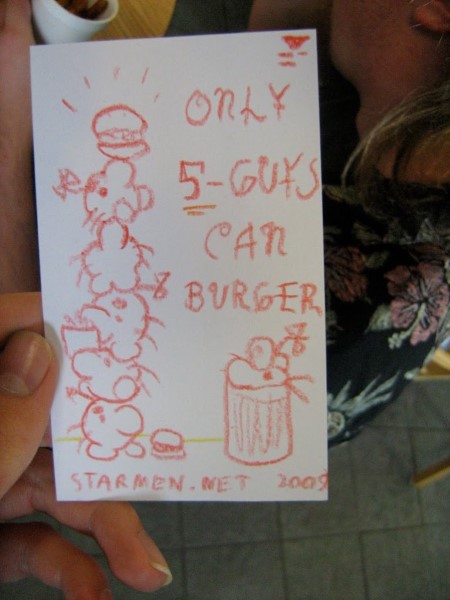 ONLY
5-GUYS
CAN
BURGER
STARMEN.NET 2009